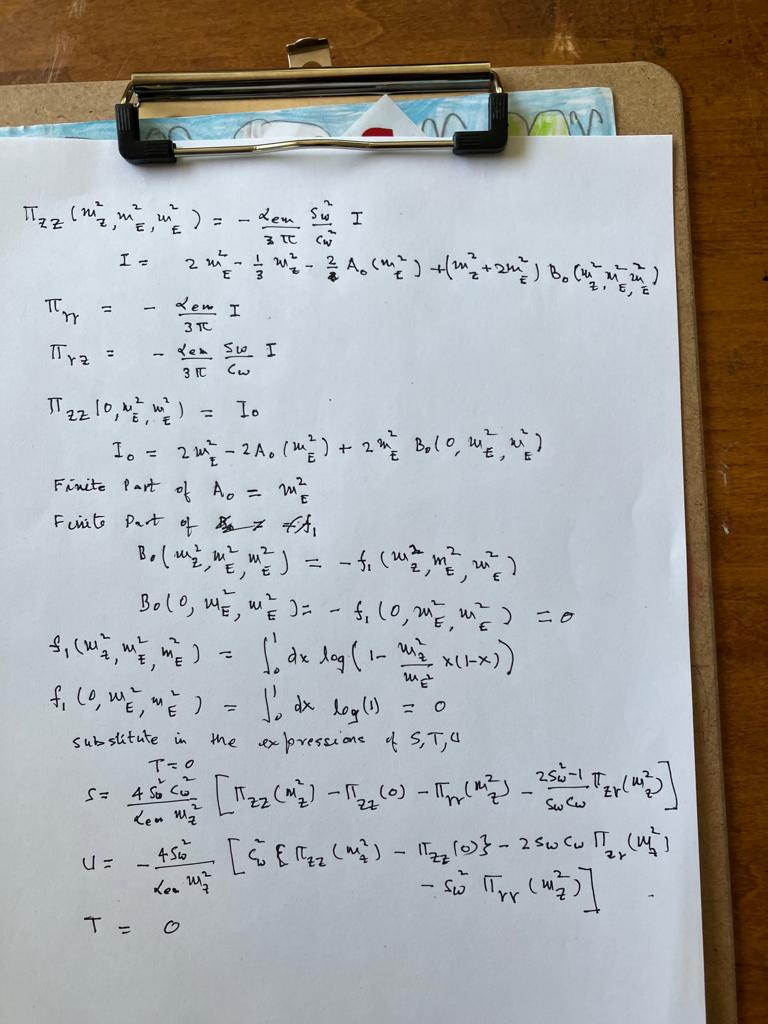 Π_ZZ (m_Z^2, m_E^2, m_E^2) = - α_em/3π s_w^2/c_w^2 I
I = 2 m_E^2 - 1/3 m_Z^2 - 2 A_0(m_E^2) + (m_Z^2 + 2m_E^2) B_0(m_Z^2, m_E^2, m_E^2)
Π_γγ = - α_em/3π I
Π_γZ = - α_em/3π s_w/c_w I
Π_ZZ (0, m_E^2, m_E^2) = I_0
I_0 = 2m_E^2 - 2A_0(m_E^2) + 2m_E^2 B_0(0, m_E^2, m_E^2)
Finite Part of A_0 = m_E^2
Finite Part of
B_0(m_Z^2, m_E^2, m_E^2) = -f_1(m_Z^2, m_E^2, m_E^2)
B_0(0, m_E^2, m_E^2) = - f_1(0, m_E^2, m_E^2) = 0
f_1(m_Z^2, m_E^2, m_E^2) = ∫_0^1 dx log(1 - m_Z^2/m_E^2 x(1-x))
f_1(0, m_E^2, m_E^2) = ∫_0^1 dx log(1) = 0
substitute in the expressions of S,T,U
T=0
S = 4 s_w^2 c_w^2/α_em m_Z^2 [Π_ZZ(m_Z^2) - Π_ZZ(0) - Π_γγ(m_Z^2) - 2s_w^2-1/s_w c_w Π_Zγ(m_Z^2)]
U = - 4s_w^2/α_em m_Z^2 [c_w^2 {Π_ZZ(m_Z^2) - Π_ZZ(0)} - 2 s_w c_w Π_Zγ(m_Z^2)
- s_w^2 Π_γγ(m_Z^2)]
T = 0